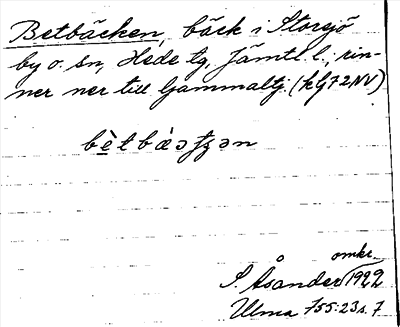 Betbäcken, bäck i Storsjö
by o. sn, Hede tg, Jämtl. l.; rin-
ner ner till Gammaltj. (kbl 72NV)
bètbàəʈʂən
omkr.
S. Åsander 1922
Ulma 755:23 s. 7